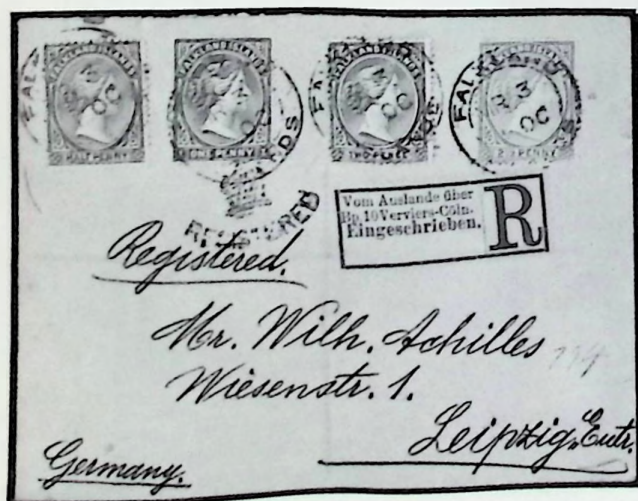 FALKLAND ISLANDS
HALFPENNY
FALKLAND ISLANDS
ONE PENNY
FALKLAND ISLANDS
TWO PENCE
FALKLAND ISLANDS
FALKLANDS
3
OC
REGISTERED
Vom Auslande über
Bp. 10 Verviers-Cöln.
Eingeschrieben.
R
Registered.
Mr. Wilh. Achilles
Wiesenstr. 1.
Leipzig-Eutr.
Germany.